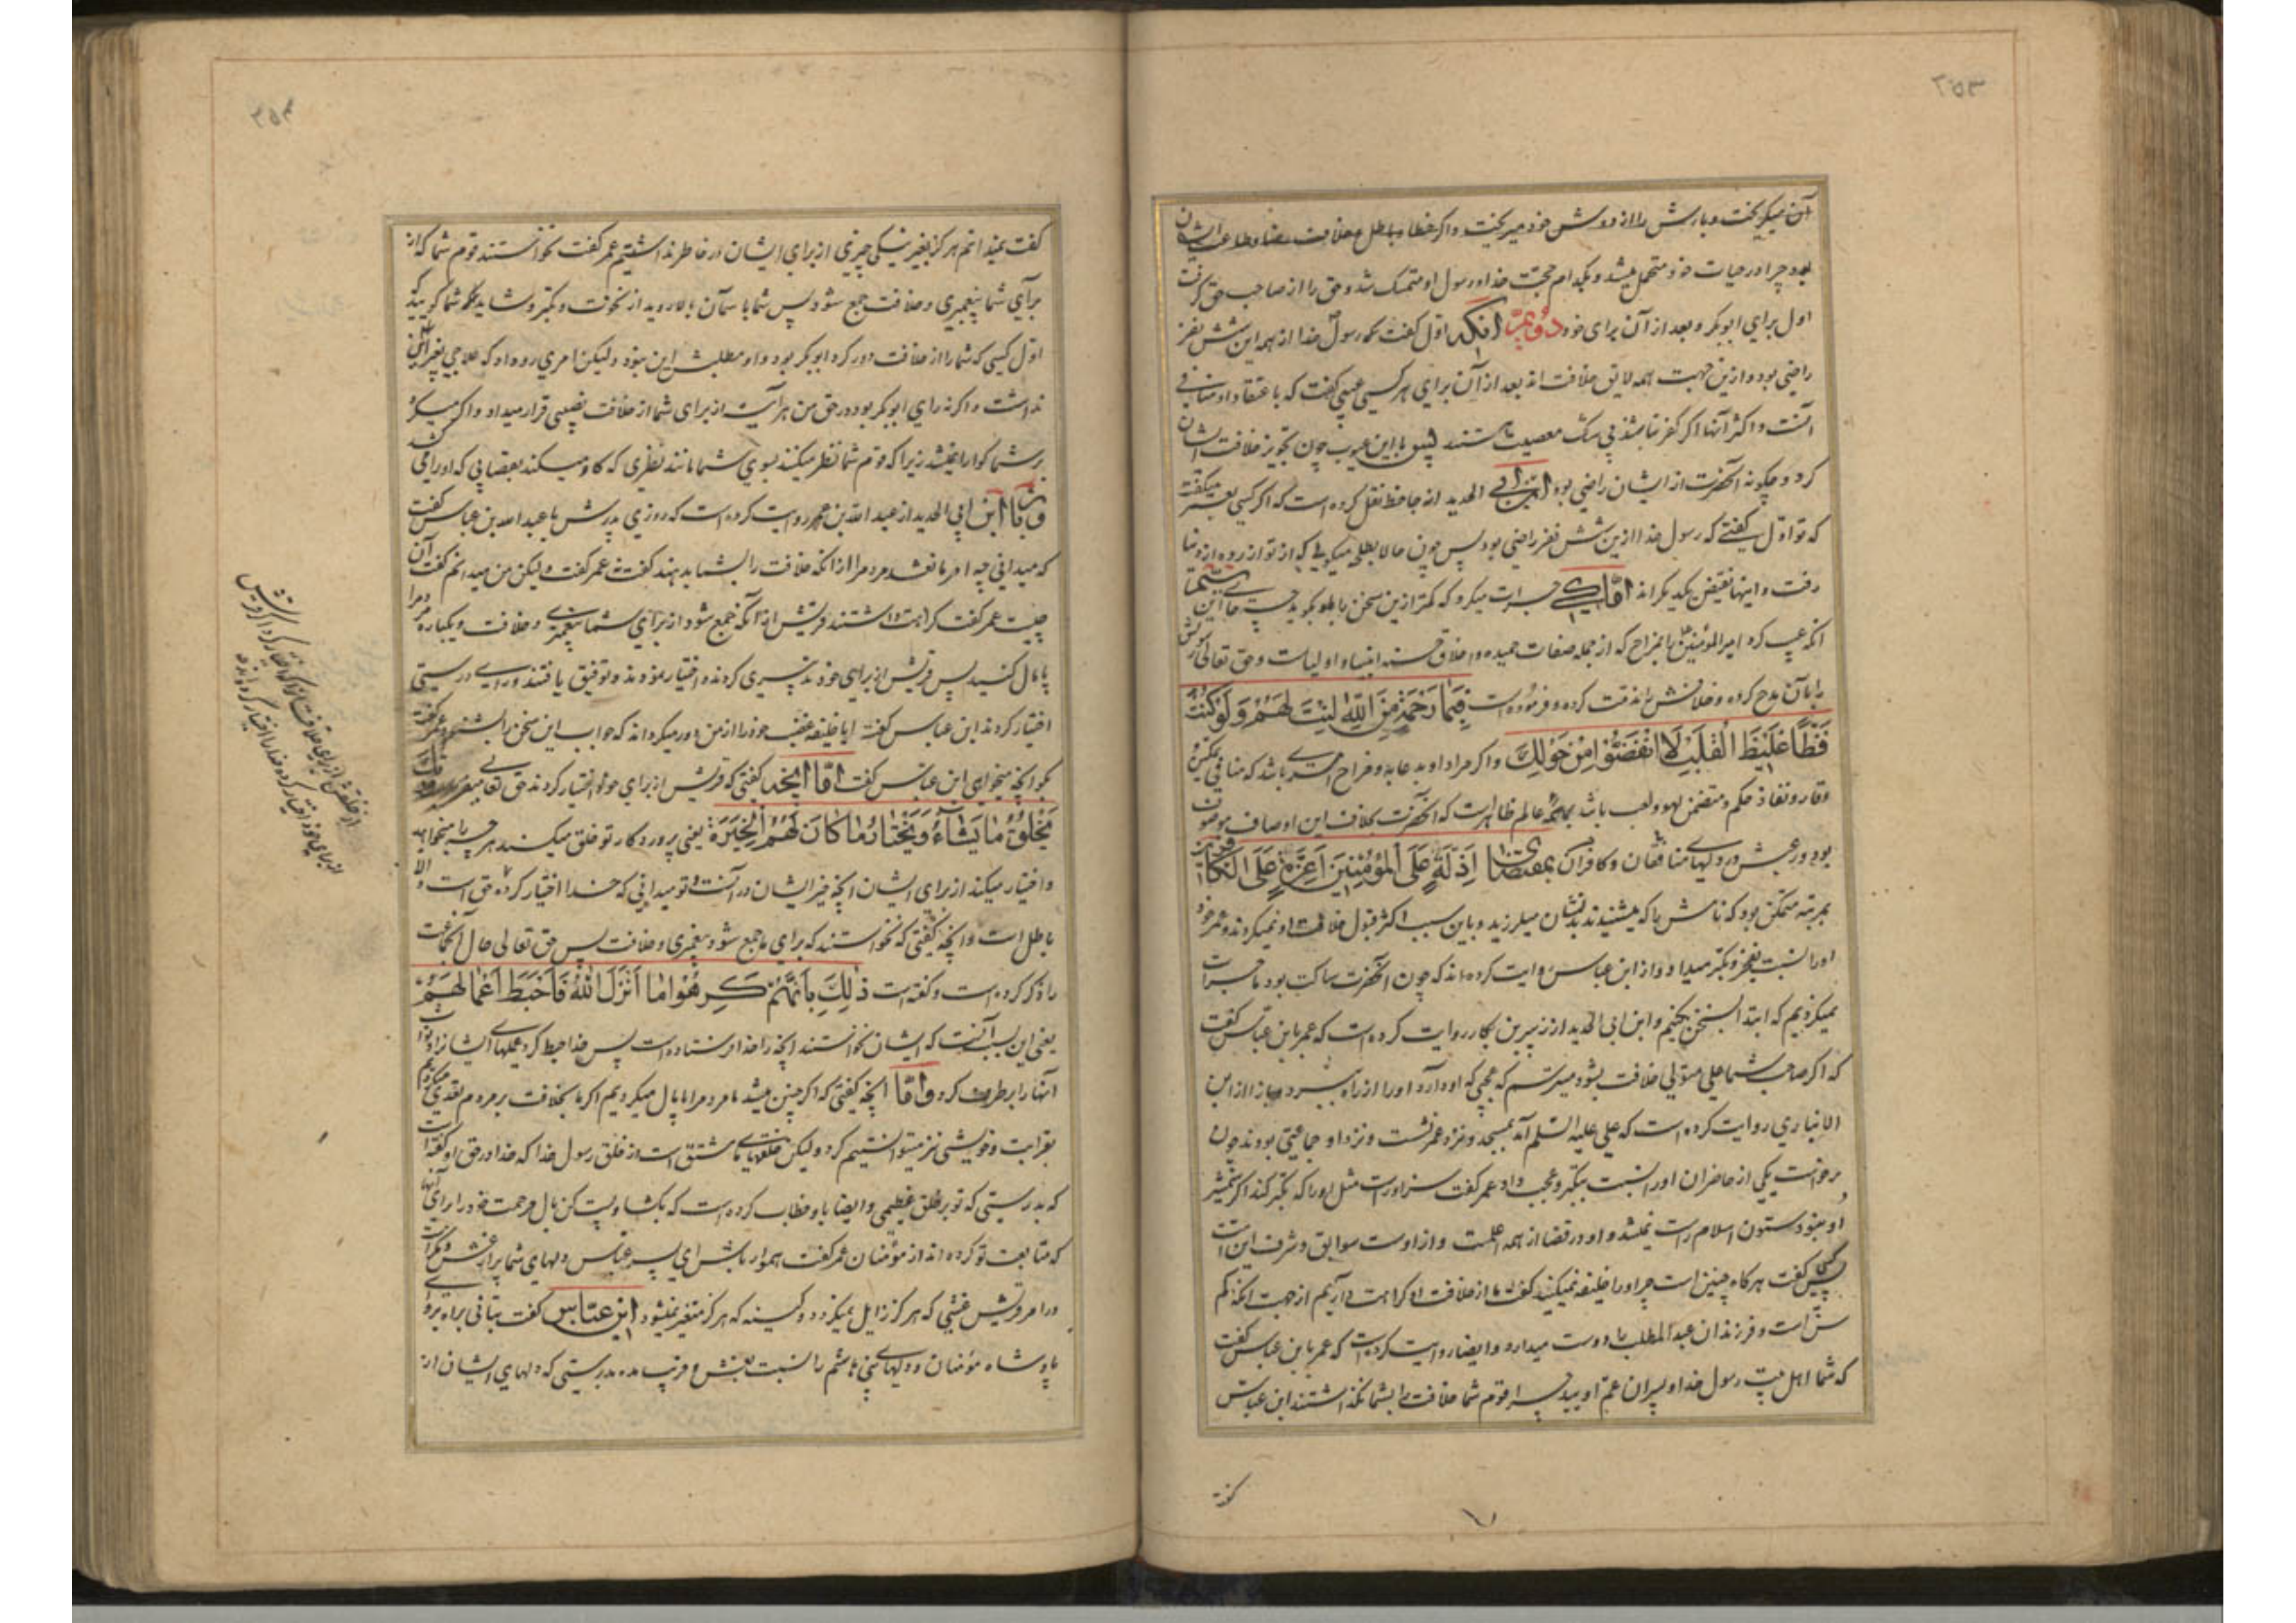 ۳۵۳
آن میگریخت و بارش را از دوش خود میریخت و اگر خطا و باطل و خلاف رضا و طاعت ایشان
بود چرا در حیات خود متحمل میشد و بکدام حجت خدا و رسول او متمسک شد و حق را از صاحب حق گرفت
اول برای ابوبکر و بعد از آن برای خود دؤم آنکه اول گفت که رسول خدا از همه این شش نفر
راضی بود و ازین جهت همه لایق خلافت اند بعد از آن برای هر کسی عیبی گفت که با عتقاد او منافی
آنست و اکثر آنها اگر کفر نباشد بی شک معصیت هستند پس با این عیوب چون تجویز خلافت ایشان
کرد و چگونه آنحضرت از ایشان راضی بود ابن ابی الحدید از جاحظ نقل کرده است که اگر کسی بعمر میگفت
که تو اول گفتی که رسول خدا ازین شش نفر راضی بود پس چون حالا بطلحه میگویی که از تو آزرده از دنیا
رفت و اینها نقیض یکدیگر اند اما کی جرات میکرد که کمتر ازین سخن را باو بگوید چه جای این
آنکه عیب کرد امیرالمؤمنین را بمزاح که از جمله صفات حمیده و اخلاق حسنه انبیا و اولیاست و حق تعالی رسولش
را بآن مدح کرده و خلافش را مذمت کرده و فرموده است فَبِمَا رَحْمَةٍ مِنَ اللّٰهِ لِنْتَ لَهُمْ وَلَوْ كُنْتَ
فَظًّا غَلِيظَ الْقَلْبِ لَا انْفَضُّوا مِنْ حَوْلِكَ و اگر مراد او بدعابه و مزاح امری باشد که منافی تمکین
وقار و نفاذ حکم و متضمن لهو و لعب باشد بر همه عالم ظاهر است که آنحضرت بخلاف این اوصاف موصوف
بود و رعبش در دلهای منافقان و کافران بمقتضای اَذِلَّةٍ عَلَى الْمُؤْمِنِينَ اَعِزَّةٍ عَلَى الْكَافِرِينَ
بمرتبه متمکن بود که نامش را که میشنیدند بدنشان میلرزید و باین سبب اکثر قبول خلافت او نمیکردند و عمر خود
او را نسبت بفخر و تکبر میداد و از ابن عباس روایت کرده اند که چون آنحضرت ساکت بود ما جرات
نمیکردیم که ابتدا بسخن بکنیم و ابن ابی الحدید از زبیر بن بکار روایت کرده است که عمر بابن عباس گفت
که اگر صاحب شما علی متولی خلافت بشود میترسم که عجبی که او دارد او را از راه ببرد و باز از ابن
الانباری روایت کرده است که علی علیه السلم آمد بمسجد و نزد عمر نشست و نزد او جماعتی بودند چون
برخواست یکی از حاضران او را نسبت بتکبر و عجب داد عمر گفت سزاوار است مثل او را که تکبر کند اگر شمشیر
او نبود ستون اسلام راست نمیشد و او در قضا از همه اعلمست و از اوست سوابق و شرف این است
پس گفت هر گاه چنین است چرا او را خلیفه نمیکنید گفت ما از خلافت او کراهت داریم از جهت آنکه کم
سن است و فرزندان عبدالمطلب را دوست میدارد و ایضا روایت کرده است که عمر بابن عباس گفت
که شما اهل بیت رسول خدا و پسران عم اویید چرا قوم شما خلافت را بشما نگذاشتند ابن عباس
گفت
۳۵۴
گفت نمیدانم هرگز بغیر نیکی چیزی از برای ایشان در خاطر نداشتیم عمر گفت نخواستند قوم شما که از
برای شما پیغمبری و خلافت جمع شود پس شما با سمان بالا روید از نخوت و تکبر و شاید که شما گویید
اول کسی که شما را از خلافت دور کرد ابوبکر بود و او مطلبش این نبود و لیکن امری رو داد که علاجی بغیر این
نداشت و اگر نه رای ابوبکر بود در حق من هر آینه از برای شما از خلافت نصیبی قرار میداد و اگر میکرد
بر شما گوارا نمیشد زیرا که قوم شما نظر میکنند بسوی شما مانند نظری که گاو میکند بقصابی که او را می کشد
و باز ابن ابی الحدید از عبد الله بن عمر روایت کرده است که روزی پدرش با عبد الله بن عباس گفت
که میدانی چه امر مانع شد مردم را از آنکه خلافت را بشما بدهند گفت نه عمر گفت ولیکن من میدانم گفت آن
چیست عمر گفت کراهت داشتند قریش از آنکه جمع شود از برای شما پیغمبری و خلافت و یکباره مردم را
پامال کنید پس قریش از برای خود تدبیری کردند و اختیار نمودند و توفیق یافتند و رای درستی
اختیار کردند ابن عباس گفت آیا خلیفه غضب خود را از من دور میگرداند که جواب این سخن را بشنود عمر گفت
بگو آنچه میخواهی ابن عباس گفت اما آنچه گفتی که قریش از برای خود اختیار کردند حق تعالی میفرماید
يَخْلُقُ مَا يَشَاءُ وَيَخْتَارُ مَا كَانَ لَهُمُ الْخِيَرَةُ یعنی پروردگار تو خلق میکند هر چه را میخواهد
و اختیار میکند از برای ایشان آنچه خیر ایشان در آنست و تو میدانی که خدا اختیار کرده حق است و الا
باطل است و آنچه گفتی که نخواستند که برای ما جمع شود پیغمبری و خلافت پس حق تعالی حال آنجماعت
را ذکر کرده است و گفته است ذٰلِكَ بِاَنَّهُمْ كَرِهُوا مَا اَنْزَلَ اللّٰهُ فَاَحْبَطَ اَعْمَالَهُمْ
یعنی این بسبب آنست که ایشان نخواستند آنچه را خدا فرستاده است پس خدا حبط کرد عملهای ایشان را و ثواب
آنها را برطرف کرد و اما آنچه گفتی که اگر چنین میشد ما مردم را پامال میکردیم اگر ما بخلافت بر مردم تعدی میکردیم
بقرابت و خویشی نیز میتوانستیم کرد و لیکن خلقهای ما مشتق است از خلق رسول خدا که خدا در حق او گفته است
که بدرستی که تو بر خلق عظیمی و ایضا باو خطاب کرده است که بگشا و پست کن بال مرحمت خود را برای آنها
که متابعت تو کرده اند از مؤمنان عمر گفت هموار باش ای پسر عباس دلهای شما پر از غش و مکر است
در امر قریش غشی که هرگز زایل نمیگردد و کینه که هرگز متغیر نمیشود ابن عباس گفت بتانی براه رو ای
پادشاه مؤمنان و دلهای بنی هاشم را نسبت بغش و فریب مده بدرستی که دلهای ایشان از